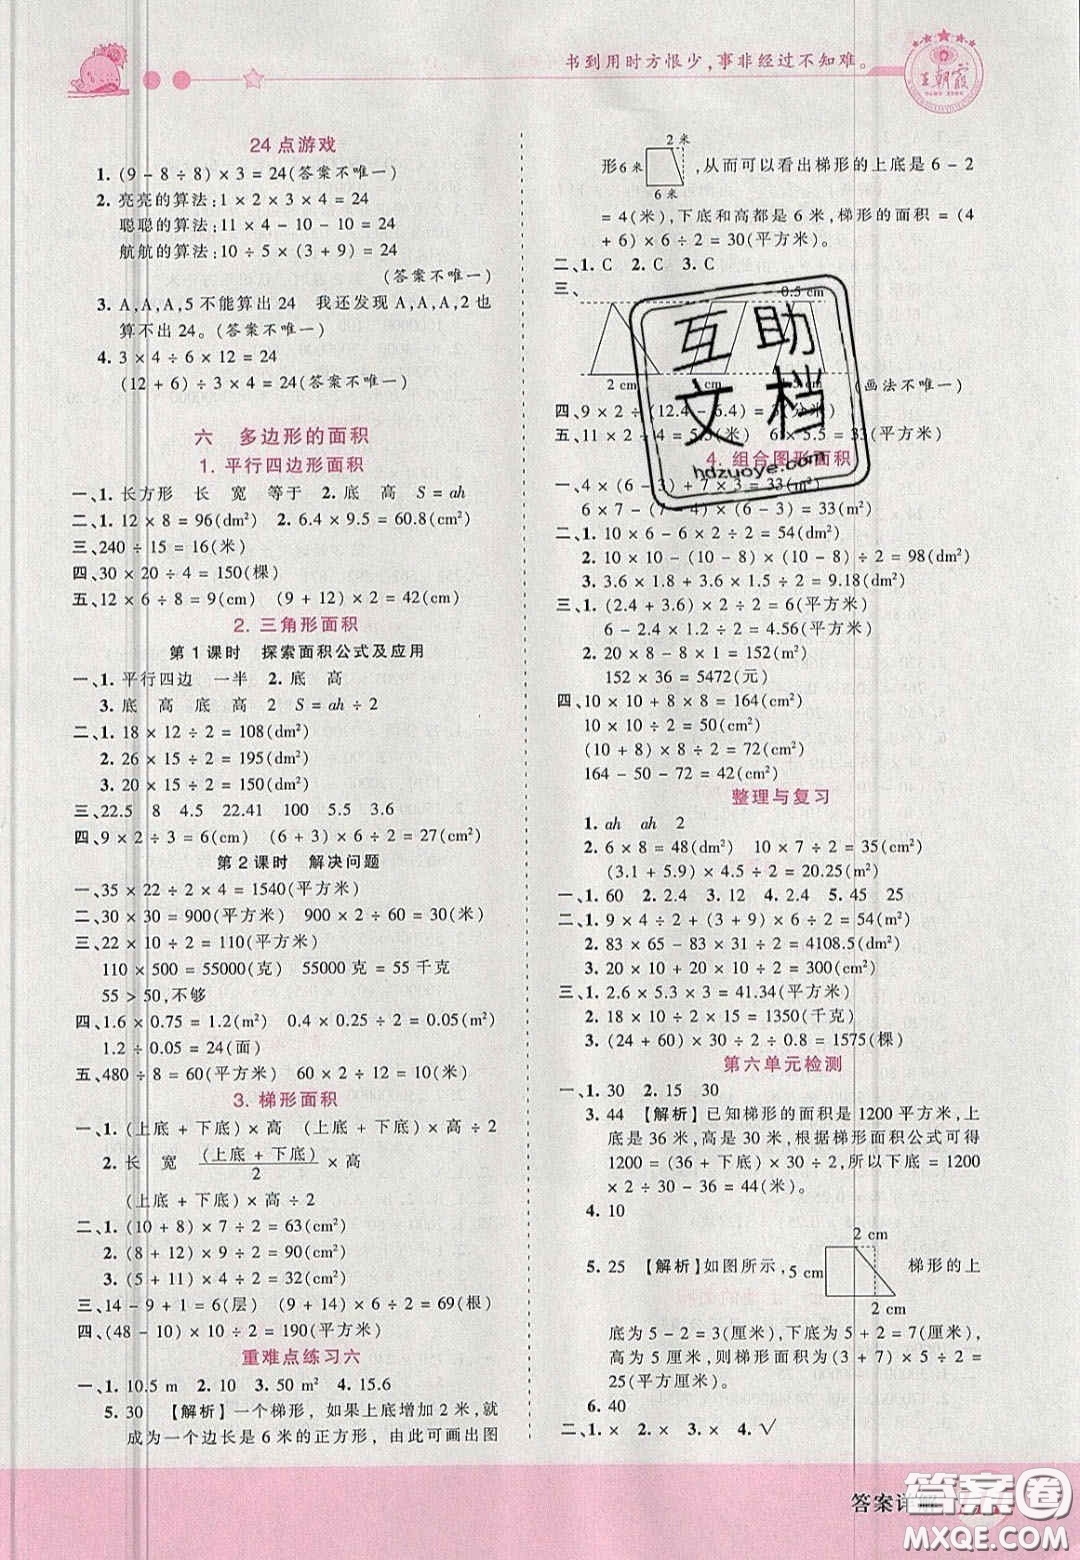 书到用时方恨少,事非经过不知难。
王朝霞
24点游戏
1. (9 - 8 ÷ 8) × 3 = 24(答案不唯一)
2. 亮亮的算法:1 × 2 × 3 × 4 = 24
聪聪的算法:11 × 4 - 10 - 10 = 24
航航的算法:10 ÷ 5 × (3 + 9) = 24
(答案不唯一)
3. A,A,A,5 不能算出 24 我还发现 A,A,A,2 也
算不出 24。(答案不唯一)
4. 3 × 4 ÷ 6 × 12 = 24
(12 + 6) ÷ 3 × 4 = 24(答案不唯一)
六 多边形的面积
1. 平行四边形面积
一、1. 长方形 长 宽 等于 2. 底 高 S = ah
二、1. 12 × 8 = 96(dm²) 2. 6.4 × 9.5 = 60.8(cm²)
三、240 ÷ 15 = 16(米)
四、30 × 20 ÷ 4 = 150(棵)
五、12 × 6 ÷ 8 = 9(cm) (9 + 12) × 2 = 42(cm)
2. 三角形面积
第1课时 探索面积公式及应用
一、1. 平行四边 一半 2. 底 高
3. 底 高 底 高 2 S = ah ÷ 2
二、1. 18 × 12 ÷ 2 = 108(dm²)
2. 26 × 15 ÷ 2 = 195(dm²)
3. 20 × 15 ÷ 2 = 150(dm²)
三、22.5 8 4.5 22.41 100 5.5 3.6
四、9 × 2 ÷ 3 = 6(cm) (6 + 3) × 6 ÷ 2 = 27(cm²)
第2课时 解决问题
一、35 × 22 ÷ 2 × 4 = 1540(平方米)
二、30 × 30 = 900(平方米) 900 × 2 ÷ 60 = 30(米)
三、22 × 10 ÷ 2 = 110(平方米)
110 × 500 = 55000(克) 55000 克 = 55 千克
55 > 50,不够
四、1.6 × 0.75 = 1.2(m²) 0.4 × 0.25 ÷ 2 = 0.05(m²)
1.2 ÷ 0.05 = 24(面)
五、480 ÷ 8 = 60(米) 60 × 2 ÷ 10 = 12(米)
3. 梯形面积
一、1. (上底 + 下底) × 高 (上底 + 下底) × 高 ÷ 2
2. 长 宽 (上底 + 下底)/2 × 高
(上底 + 下底) × 高 ÷ 2
二、1. (10 + 8) × 7 ÷ 2 = 63(cm²)
2. (8 + 12) × 9 ÷ 2 = 90(cm²)
3. (5 + 11) × 4 ÷ 2 = 32(cm²)
三、14 - 9 + 1 = 6(层) (9 + 14) × 6 ÷ 2 = 69(根)
四、(48 - 10) × 10 ÷ 2 = 190(平方米)
重难点练习六
一、1. 10.5 m 2. 10 3. 50 m² 4. 15.6
5. 30 【解析】一个梯形,如果上底增加 2 米,就
成为一个边长是 6 米的正方形,由此可画出图
2 米
形6 米 ,从而可以看出梯形的上底是 6 - 2
6 米
= 4(米),下底和高都是 6 米,梯形的面积 = (4
+ 6) × 6 ÷ 2 = 30(平方米)。
二、1. C 2. C 3. C
三、
0.5 cm
2 cm cm cm (画法不唯一)
四、9 × 2 ÷ (12.4 - 6.4) = 3(分米)
五、11 × 2 ÷ 4 = 5.5(米) 6 × 5.5 = 33(平方米)
4. 组合图形面积
一、4 × (6 - 3) + 7 × 3 = 33(m²)
6 × 7 - (7 - 4) × (6 - 3) = 33(m²)
二、1. 10 × 6 - 6 × 2 ÷ 2 = 54(dm²)
2. 10 × 10 - (10 - 8) × (10 - 8) ÷ 2 = 98(dm²)
3. 3.6 × 1.8 + 3.6 × 1.5 ÷ 2 = 9.18(dm²)
三、1. (2.4 + 3.6) × 2 ÷ 2 = 6(平方米)
6 - 2.4 × 1 ÷ 2 = 4.8(平方米)
2. 20 × 8 - 8 × 1 = 152(m²)
152 × 36 = 5472(元)
四、10 × 10 + 8 × 8 = 164(cm²)
10 × 10 ÷ 2 = 50(cm²)
(10 + 8) × 8 ÷ 2 = 72(cm²)
164 - 50 - 72 = 42(cm²)
整理与复习
1. ah ah 2
2. 6 × 8 = 48(dm²) 10 × 7 ÷ 2 = 35(dm²)
(3.1 + 5.9) × 4.5 ÷ 2 = 20.25(m²)
一、1. 60 2. 2.4 3. 12 4. 2.4 5. 45 25
二、1. 9 × 4 ÷ 2 + (3 + 9) × 6 ÷ 2 = 54(m²)
2. 83 × 65 - 83 × 31 ÷ 2 = 4108.5(dm²)
3. 20 × 20 + 10 × 10 ÷ 2 = 450(cm²)
三、1. 2.6 × 5.3 × 3 = 41.34(平方米)
2. 18 × 10 ÷ 2 × 15 = 1350(千克)
3. (24 + 60) × 30 ÷ 2 ÷ 0.8 = 1575(棵)
第六单元检测
一、1. 30 2. 15 30
3. 44 【解析】已知梯形的面积是 1200 平方米,上
底是 36 米,高是 30 米,根据梯形面积公式可得
1200 = (36 + 下底) × 30 ÷ 2,所以下底 = 1200
× 2 ÷ 30 - 36 = 44(米)。
4. 10
2 cm
5. 25 【解析】如图所示, 5 cm 梯形的上
2 cm
底为 5 - 2 = 3(厘米),下底为 5 + 2 = 7(厘米),
高为 5 厘米,则梯形的面积为 (3 + 7) × 5 ÷ 2 =
25(平方厘米)。
6. 40
二、1. × 2. × 3. × 4. √
互助
文档
hdzuoye.com
答案详解
答案圈
MXQE.COM